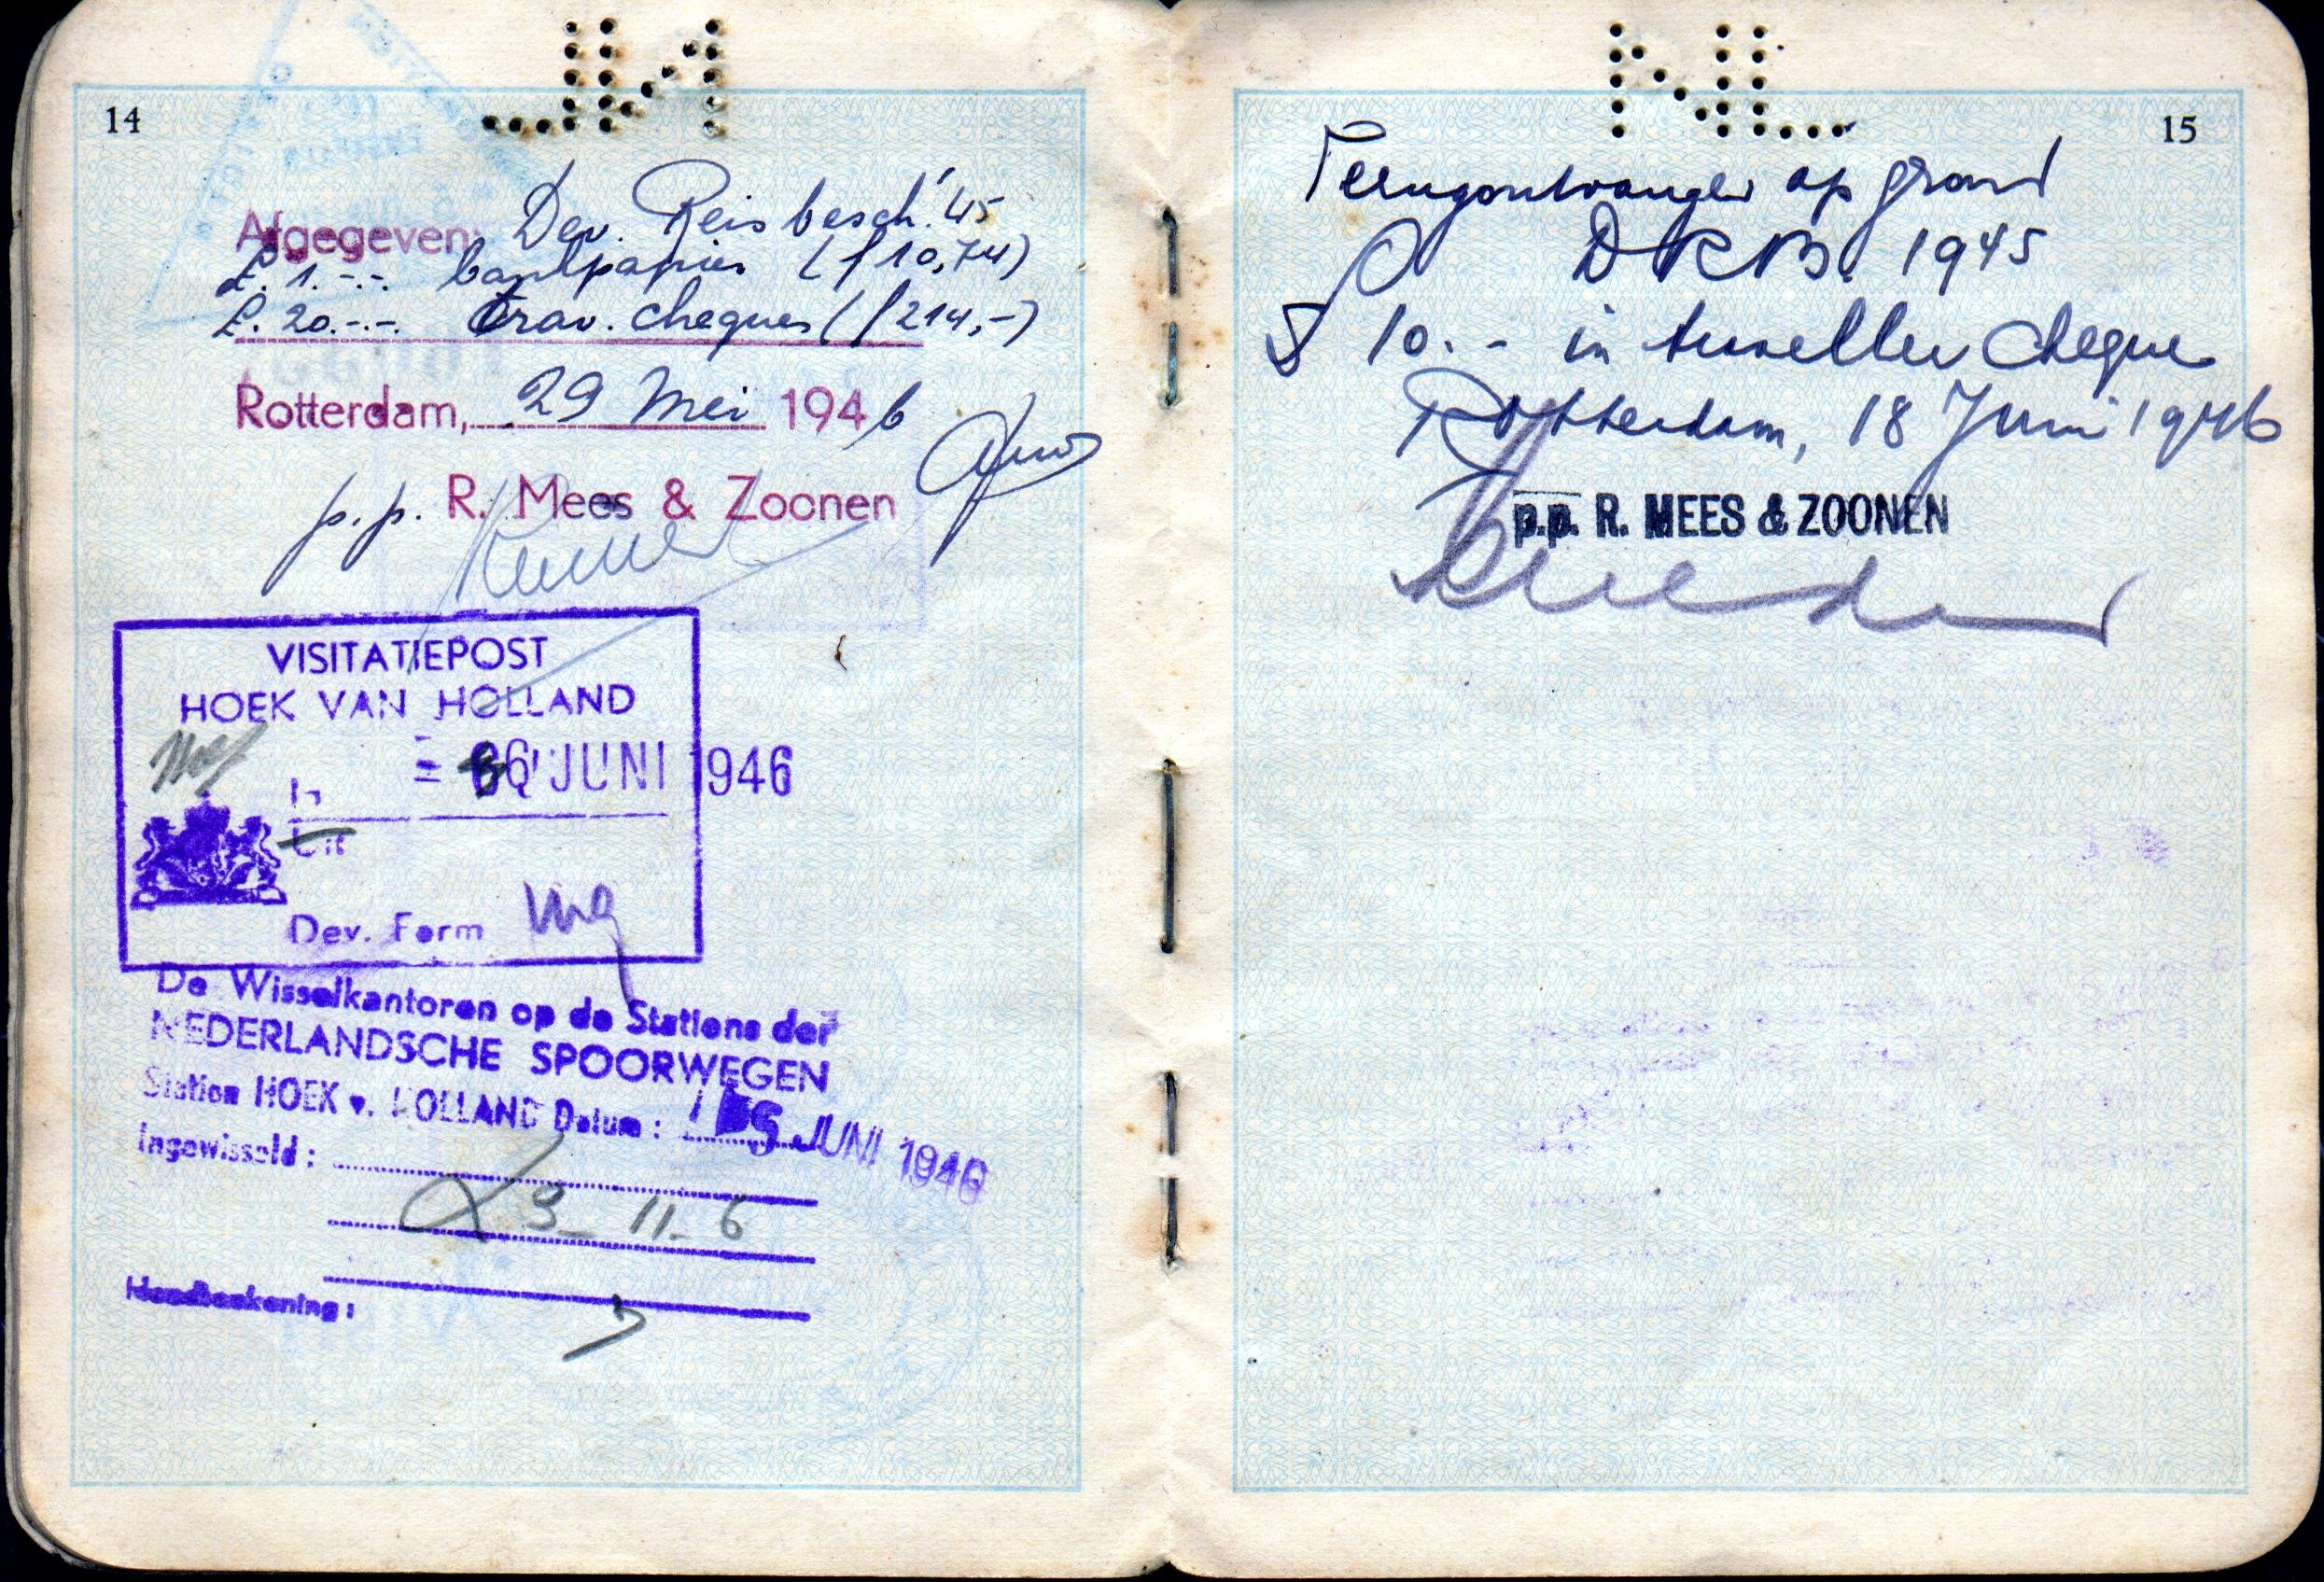 NL
14
Afgegeven: Dev. Reisbesch. '45
£. 1.-.-. bankpapier (f 10,74)
£. 20.-.-. trav. cheques (f 214,-)
Rotterdam, 29 Mei 1946
p.p. R. Mees & Zoonen
VISITATIEPOST
HOEK VAN HOLLAND
6 JUNI 1946
In
Uit
Dev. Form
De Wisselkantoren op de Stations der
NEDERLANDSCHE SPOORWEGEN
Station HOEK v. HOLLAND Datum: JUNI 1946
Ingewisseld:
£ 3-11-6
Handteekening:
NL
15
Terugontvangen op grond
DRB. 1945
10.- in traveller cheque
Rotterdam, 18 Juni 1946
p.p. R. MEES & ZOONEN